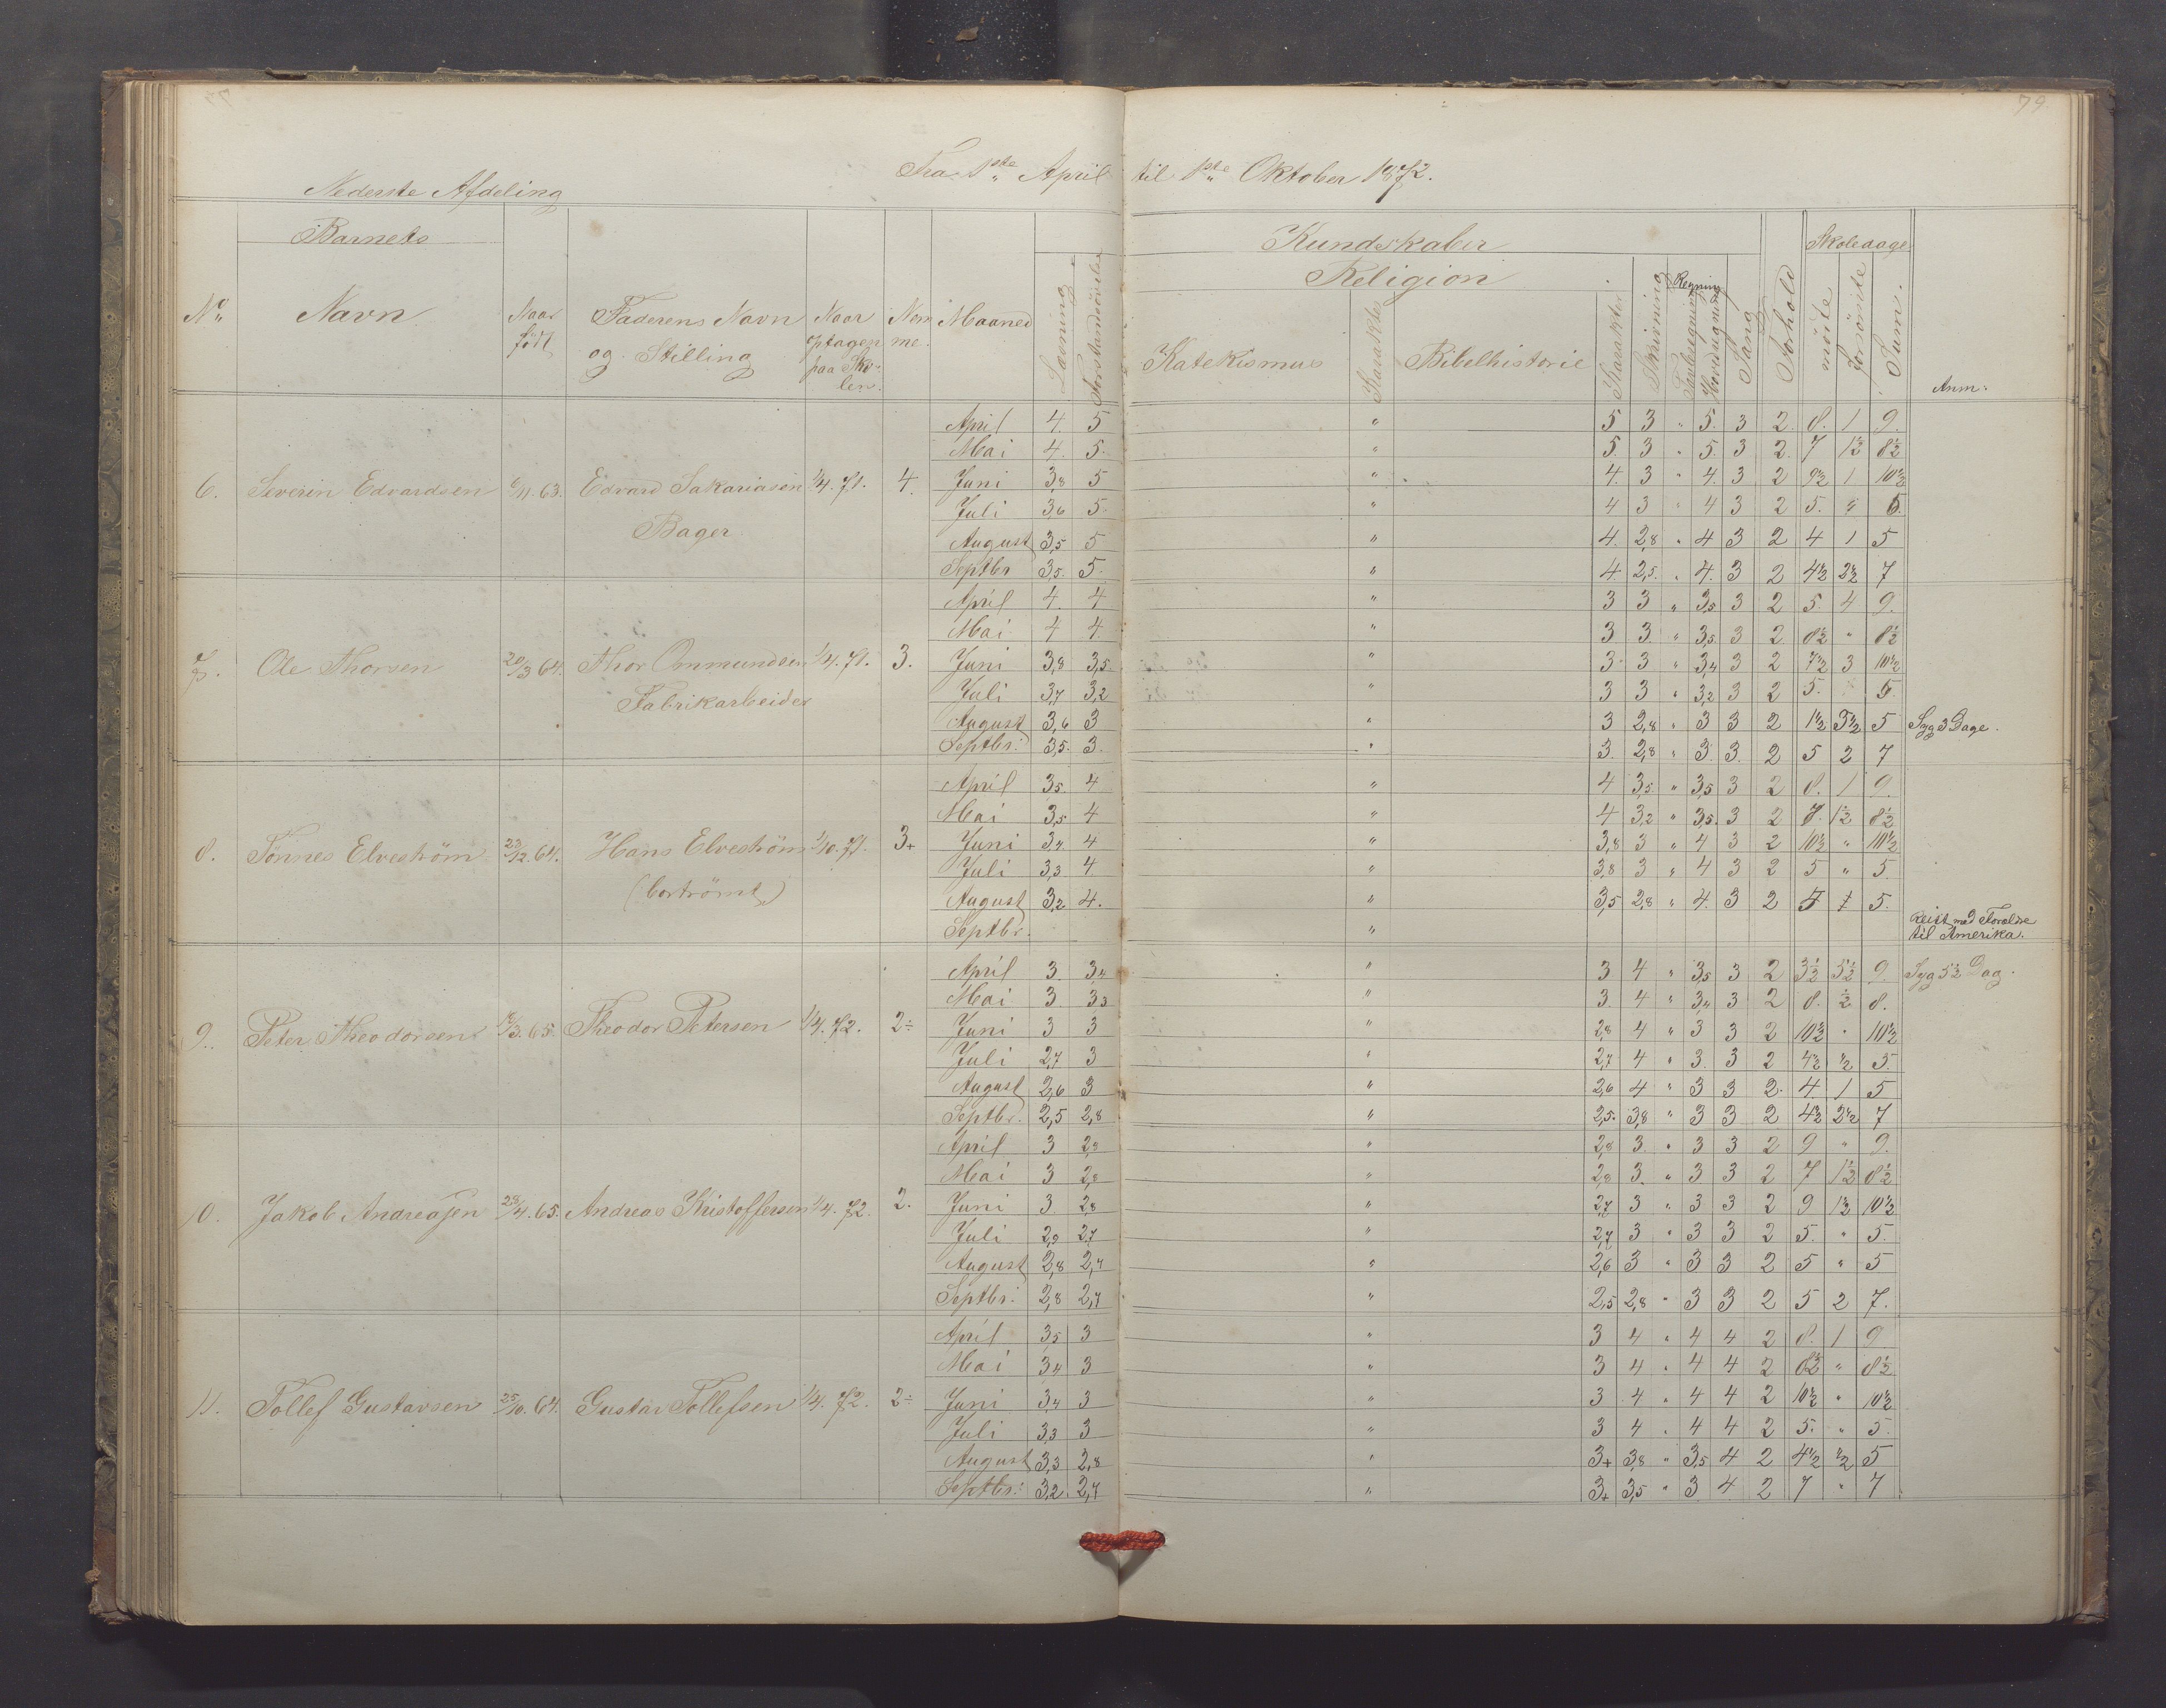 79.
Fra 1ste April til 1ste Oktober 1872.
Nederste Afdeling
Barnets
Kundskaber
Skoledage
Religion
Regning
No Navn Naar født Faderens Navn og Stilling Naar optagen paa Skolen. Nemme. Maaned Læsning Forstandsøvelse Katekismus Karakter Bibelhistorie Karakter Skrivning Tavleregning Hovedregning Sang Forhold mødte forsømte Sum. Anm:
April 4. 5 " 5 3 " 5. 3 2. 8. 1 9.
Mai 4. 5. " 5. 3 " 5. 3 2. 7 1½ 8½
6. Severin Edvardsen 6/11. 63. Edvard Sakariasen 1/4. 71. 4. Juni 3,8 5 " 4. 3 " 4. 3 2 9½ 1 10½
Bager
Juli 3,6 5. " 4 3 " 4 3 2 5. " 5.
August 3,5 5 " 4. 2,8 " 4 3 2 4 1 5
Septbr 3,5. 5. " 4. 2,5. " 4. 3 2 4½ 2½ 7
April 4. 4 " 3 3 " 3,5 3 2 5. 4 9.
Mai 4 4 " 3 3. " 3,5. 3 2 8½ " 8½
7. Ole Thorsen 20/3 64. Thor Ommundsen 1/4. 71. 3. Juni 3,8 3,5. " 3 3 " 3,4 3 2 7½ 3 10½
Fabrikarbeider
Juli 3,7 3,2 " 3 3 " 3,2 3 2 5. 5
August 3,6 3 " 3 2,8 " 3 3 2 1½ 3½ 5 Syg 3 Dage.
Septbr: 3,5. 3. " 3. 2,8 " 3. 3. 2 5 2 7
April 3,5. 4 " 4 3,5. " 3,5 3 2 8. 1 9.
Mai 3,5 4 " 4 3,2 " 3,5. 3 2 7. 1½ 8½
8. Tønnes Elvestrøm 23/12. 64. Hans Elvestrøm 1/10. 71. 3+ Juni 3,4 4 " 3,8 3 " 4 3 2 10½ " 10½
(bortrømt)
Juli 3,3 4 " 3,8 3 " 4 3 2 5 " 5.
August 3,2 4. " 3,5 2,8 " 4. 3 2 5.
Septbr. " Reist med Forældre til Amerika.
April 3. 3,4 " 3 4 " 3,5 3 2 3½ 5½ 9. Syg 5½ Dag.
Mai 3. 3,3 " 3. 4 " 3,4 3 2 8. ½ 8.
9. Peter Theodorsen /3. 65. Theodor Petersen 1/4. 72. 2÷ Juni 3 3 " 2,8 4 " 3 3 2 10½ " 10½
Juli 2,7 3 " 2,7 4 " 3. 3 2 4½ ½ 5.
August 2,6 3 " 2,6 4 " 3 3 2. 4. 1 5
Septbr. 2,5 2,8 " 2,5. 3,8 " 3 3 2 4½ 2½ 7
April 3 2,9 " 2,8 3. " 3 3 2 9 " 9.
Mai 3 2,9 " 2,8 3. " 3 3 2 7 1½ 8½
10. Jakob Andreasen 28/4. 65. Andreas Kristoffersen 1/4. 72. 2. Juni 3. 2,8 " 2,7 3 " 3 3 2 9 1½ 10½
Juli 2,9 2,7 " 2,7 3 " 3 3 2 5. " 5.
August 2,8 2,7 " 2,6 3 " 3 3 2 5 " 5
Septbr. 2,8 2,7 " 2,5 2,8 " 3 3 2 5 2 7.
April 3,5 3 " 3 4 " 4 4 2 8. 1 9
Mai 3,4 3 " 3 4 " 4 4 2 8½ " 8½
11. Tollef Gustavsen 25/10. 64. Gustav Tollefsen 1/4. 72. 2÷ Juni 3,4 3 " 3 4 " 4 4 2 10½ " 10½
Juli 3,3 3 " 3 4 " 4 4 2 5. " 5.
August 3,3 2,8 " 3+ 3,8 " 3,5 4 2 4½ ½ 5
Septbr: 3,2. 2,7 " 3+ 3,5 " 3 4 2 7 " 7